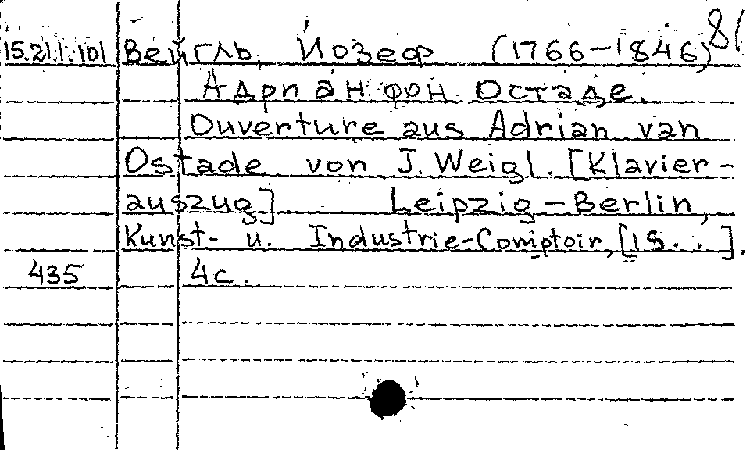 81
15.211.101 Вейгль, Йозеф (1766-1846)
Адриан фон Остаде.
Ouverture aus Adrian van
Ostade von J. Weigl. [Klavier-
auszug] Leipzig-Berlin,
Kunst- u. Industrie-Comptoir, [18..].
435 4с.